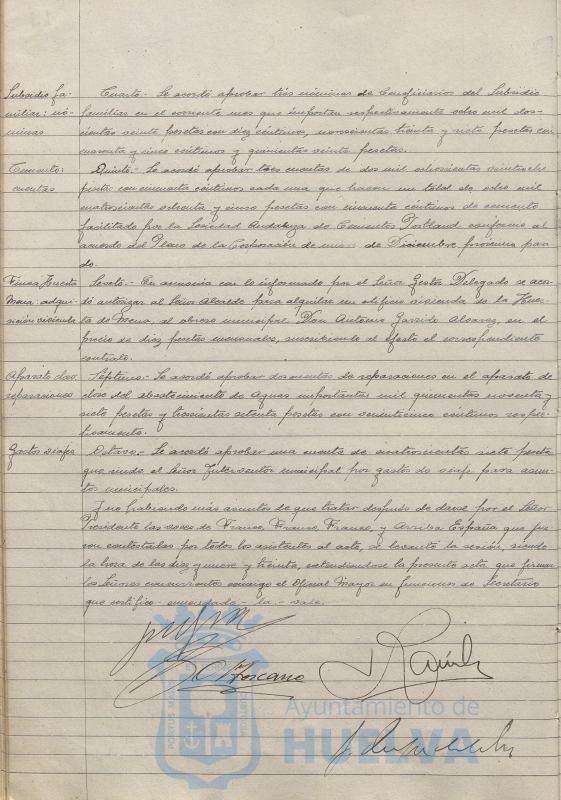 Subsidio fa-
miliar: nó-
minas
Cuarto.- Se acordó aprobar tres nóminas de beneficiarios del Subsidio
familiar en el corriente mes que importan respectivamente ocho mil dos-
cientas veinte pesetas con diez céntimos, novecientas treinta y siete pesetas con
cuarenta y cinco céntimos y quinientas veinte pesetas.
Cemento:
cuentas
Quinto.- Se acordó aprobar tres cuentas de dos mil ochocientas veintiocho
pesetas con cincuenta céntimos cada una que hacen un total de ocho mil
cuatrocientas ochenta y cinco pesetas con cincuenta céntimos de cemento
facilitado por la Sociedad Andaluza de Cementos Portland conforme al
acuerdo del Pleno de la Corporación de nueve de Diciembre próximo pasa-
do.
Finca Huerta
Mena: adqui-
sición vivienda
Sexto.- En armonía con lo informado por el Señor Gestor Delegado se acor-
dó autorizar al Señor Alcalde para alquilar un edificio vivienda de la Huer-
ta de Mena, al obrero municipal Don Antonio Garrido Alvarez, en el
precio de diez pesetas mensuales, suscribiendo al efecto el correspondiente
contrato.
Aparato cloro
reparaciones
Séptimo.- Se acordó aprobar dos cuentas de reparaciones en el aparato de
cloro del abastecimiento de Aguas importantes mil quinientas noventa y
siete pesetas y trescientas setenta pesetas con veinticinco céntimos respec-
tivamente.
Gastos viajes
Octavo.- Se acordó aprobar una cuenta de cuatrocientas siete pesetas
que rinde el Señor Interventor municipal por gastos de viaje para asun-
tos municipales.
Y no habiendo más asuntos de que tratar después de darse por el Señor
Presidente las voces de Franco, Franco, Franco, y Arriba España que fue-
ron contestadas por todos los asistentes al acto, se levantó la sesión, siendo
la hora de las diez y nueve y treinta, extendiéndose la presente acta que firman
los Señores concurrentes conmigo el Oficial Mayor en funciones de Secretario
que certifico.- enmendado - la - vale.
Toscano
Ayuntamiento de
HUELVA